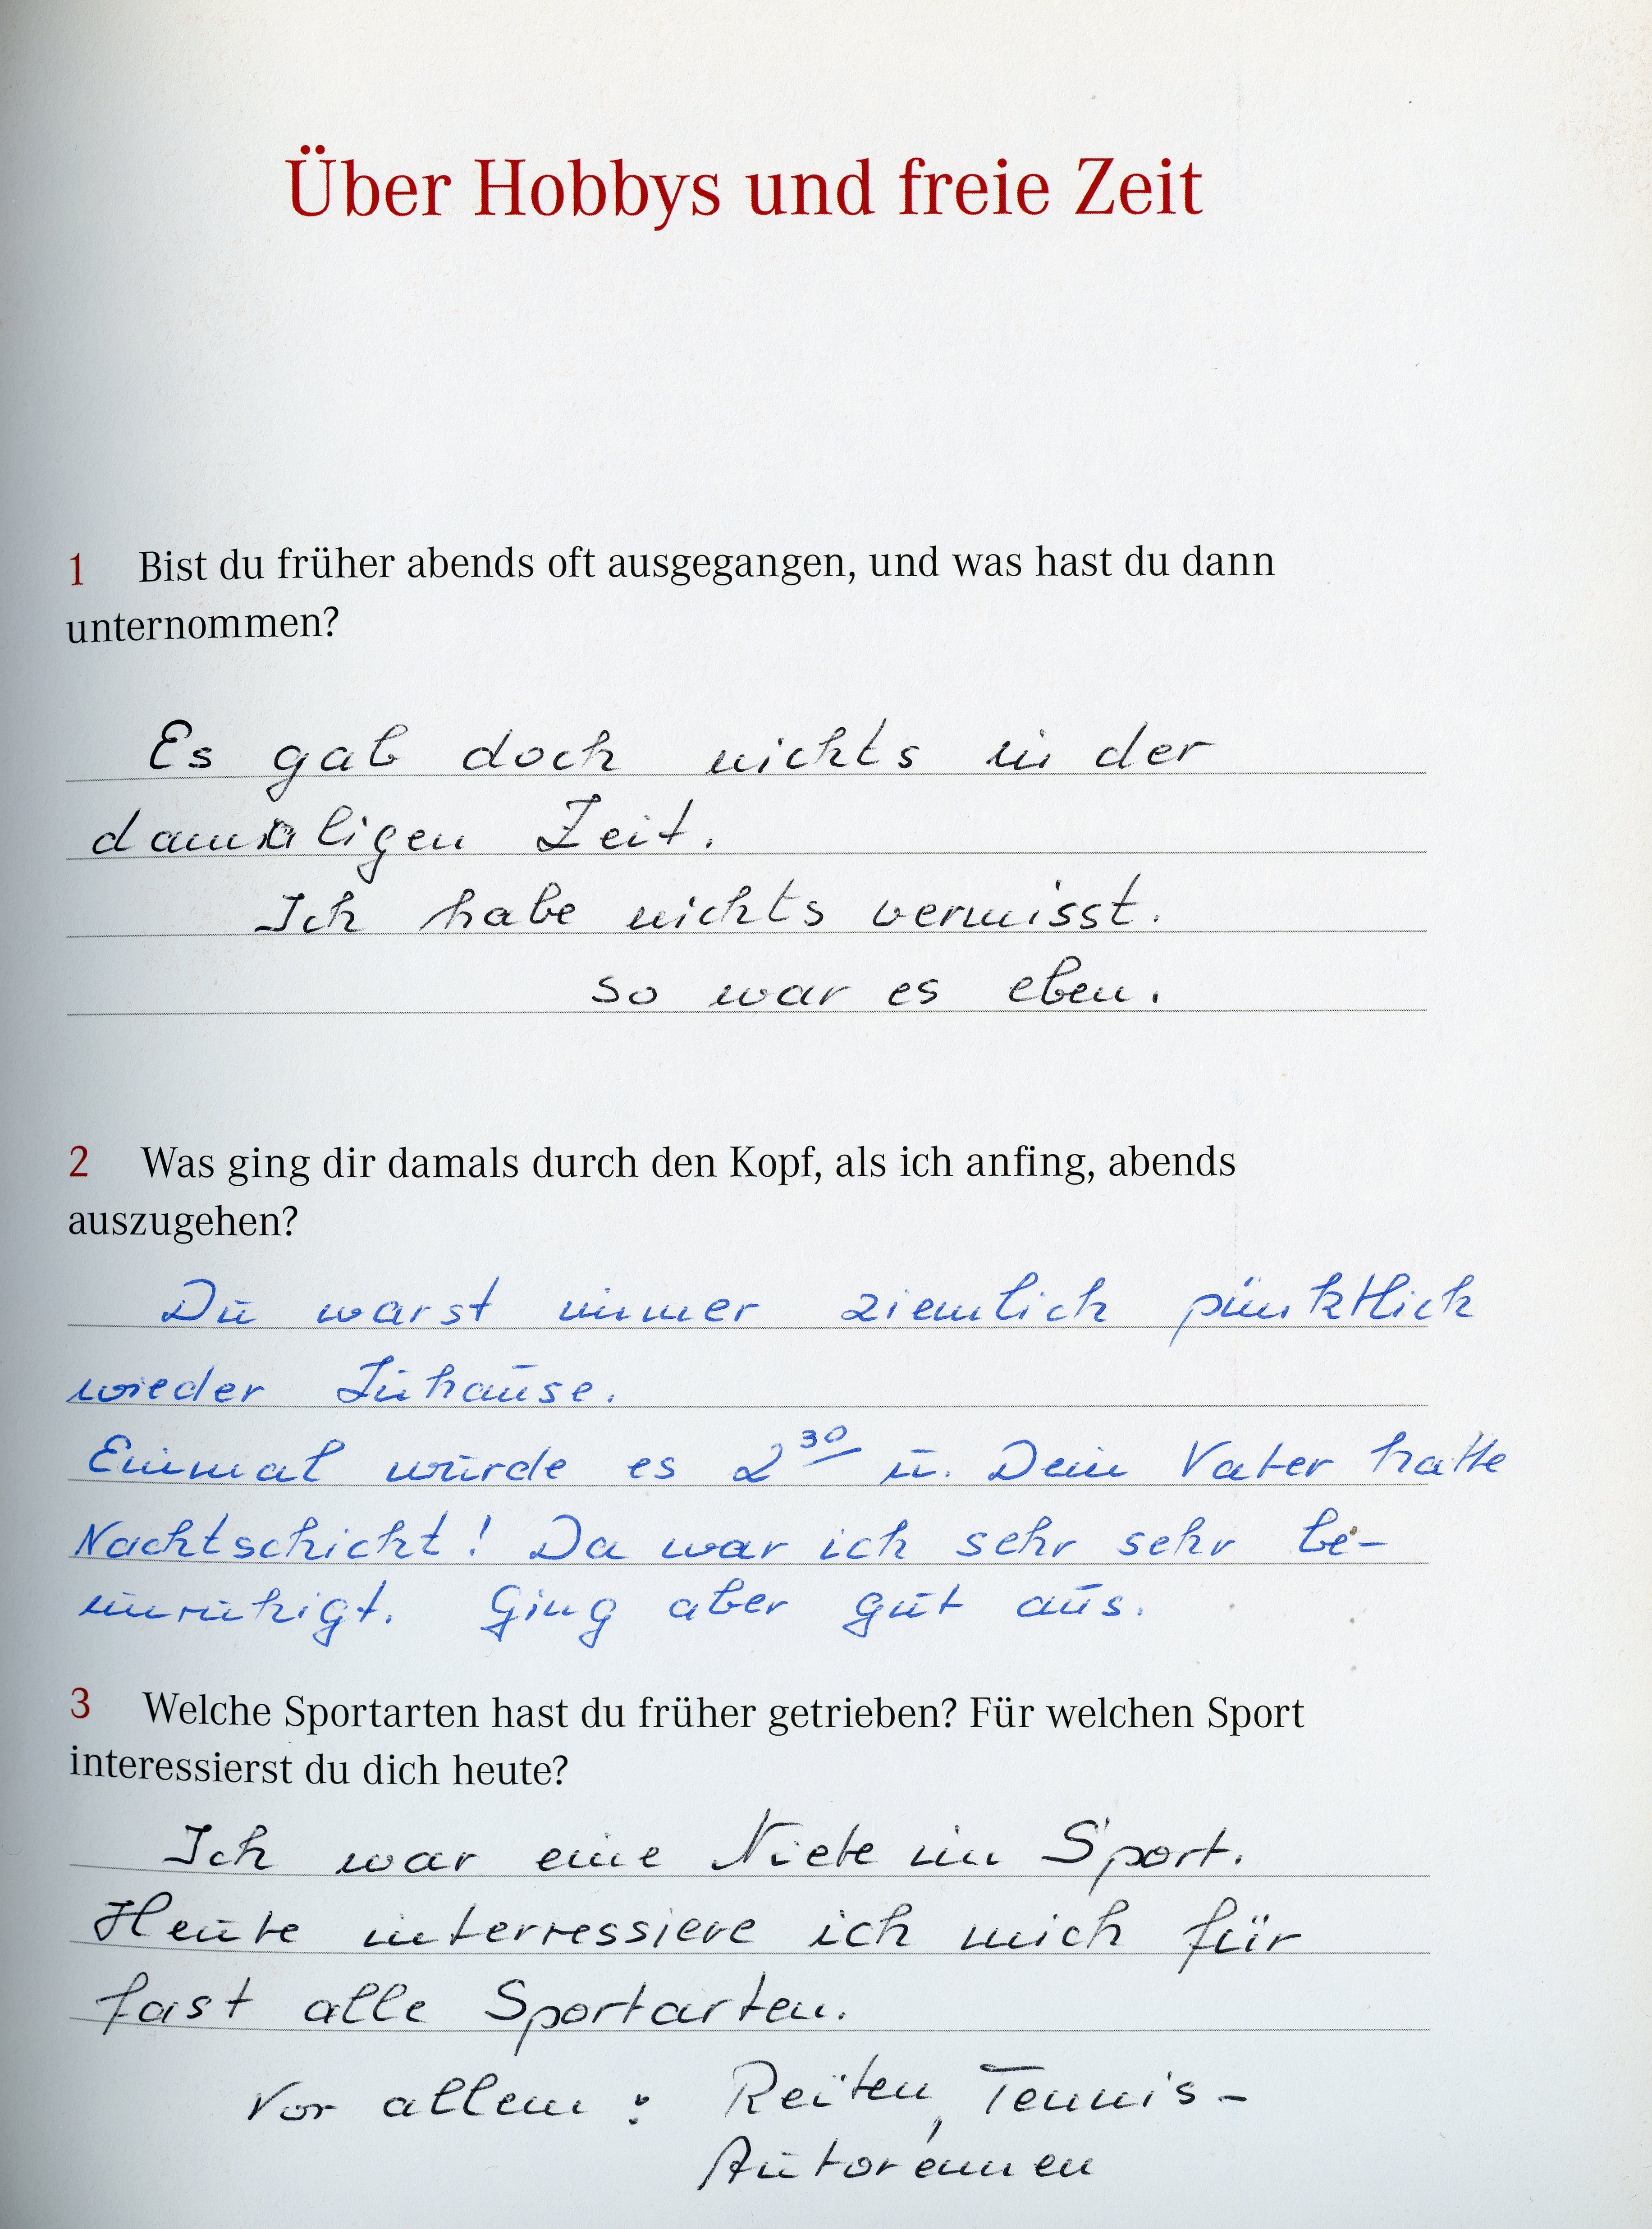 Über Hobbys und freie Zeit
1 Bist du früher abends oft ausgegangen, und was hast du dann
unternommen?
Es gab doch nichts in der
damaligen Zeit.
Ich habe nichts vermisst.
so war es eben.
2 Was ging dir damals durch den Kopf, als ich anfing, abends
auszugehen?
Du warst immer ziemlich pünktlich
wieder Zuhause.
Einmal wurde es 2³⁰ u. Dein Vater hatte
Nachtschicht! Da war ich sehr sehr be-
unruhigt. Ging aber gut aus.
3 Welche Sportarten hast du früher getrieben? Für welchen Sport
interessierst du dich heute?
Ich war eine Niete im Sport.
Heute interressiere ich mich für
fast alle Sportarten.
Vor allem: Reiten, Tennis-
Autorennen